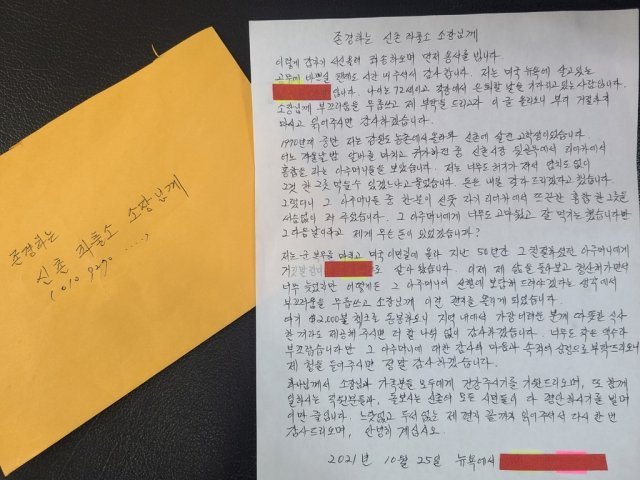 존경하는
신촌 파출소 소장님께
존경하는 신촌 파출소 소장님께
이렇게 갑자기 서신올려 죄송하오며 먼저 용서를 빕니다.
고무에 바쁘실 텐데도 시간 내주셔서 감사합니다. 저는 미국 뉴욕에 살고있는
입니다. 나이는 72세이고 직장에서 은퇴할 날을 기다리고 있는 사람입니다.
소장님께 부끄러움을 무릅쓰고 제 부탁을 드리고자 이 글 올리오니 부디 거절하지
마시고 읽어주시면 감사하겠습니다.
1970년대 중반 저는 강원도 농촌에서 올라와 신촌에 살던 고학생이었습니다.
어느 겨울날밤 알바를 마치고 귀가하던 중 신촌시장 뒷골목에서 리어카에서
홍합을 파는 아주머니들을 보았습니다. 저는 너무도 허기가 져서 염치도 없이
그것 한 그릇 먹을수 있겠느냐고 물었습니다. 돈은 내일 갖다 드리겠다고 했습니다.
그랬더니 그 아주머니들 중 한분이 선뜻 자기 리어카에서 뜨끈한 홍합 한 그릇을
서슴없이 퍼 주셨습니다. 그 아주머니에게 너무도 고맙하고 잘 먹기는 했습니다만
그 다음날이라고 제게 무슨 돈이 있었겠습니까?
저는 군 복무를 마치고 미국 이민길에 올라 지난 50년간 그 친절하셨던 아주머니에게
로 살아 왔습니다. 이제 제 삶을 돌아보고 정산하기에
너무 늦었지만 이렇게든 그 아주머니의 선행에 보답해 드려야겠다는 생각에서
부끄러움을 무릅쓰고 소장님께 이런 편지를 올리게 되었습니다.
여기 $2,000불 첵크로 동봉하오니 지역 내에서 가장 어려운 분께 따뜻한 식사
한 끼라도 제공해 주시면 더 할 나위 없이 감사하겠습니다. 너무도 작은 액수라
부끄럽습니다만 그 아주머니에 대한 감사의 마음과 속죄의 심정으로 부탁드리오니
제 청을 들어주시면 정말 감사하겠습니다.
하나님께서 소장님과 가족분들 모두에게 건강주시기를 기원드리오며, 또 함께
일하시는 직원분들과, 돌보시는 신촌의 모든 시민들이 다 평안하시기를 빌며
이만 줄입니다. 느닷없고 두서없는 제 편지 끝까지 읽어주셔서 다시 한 번
감사드리오며, 안녕히 계십시오.
2021년 10월 25일 뉴욕에서